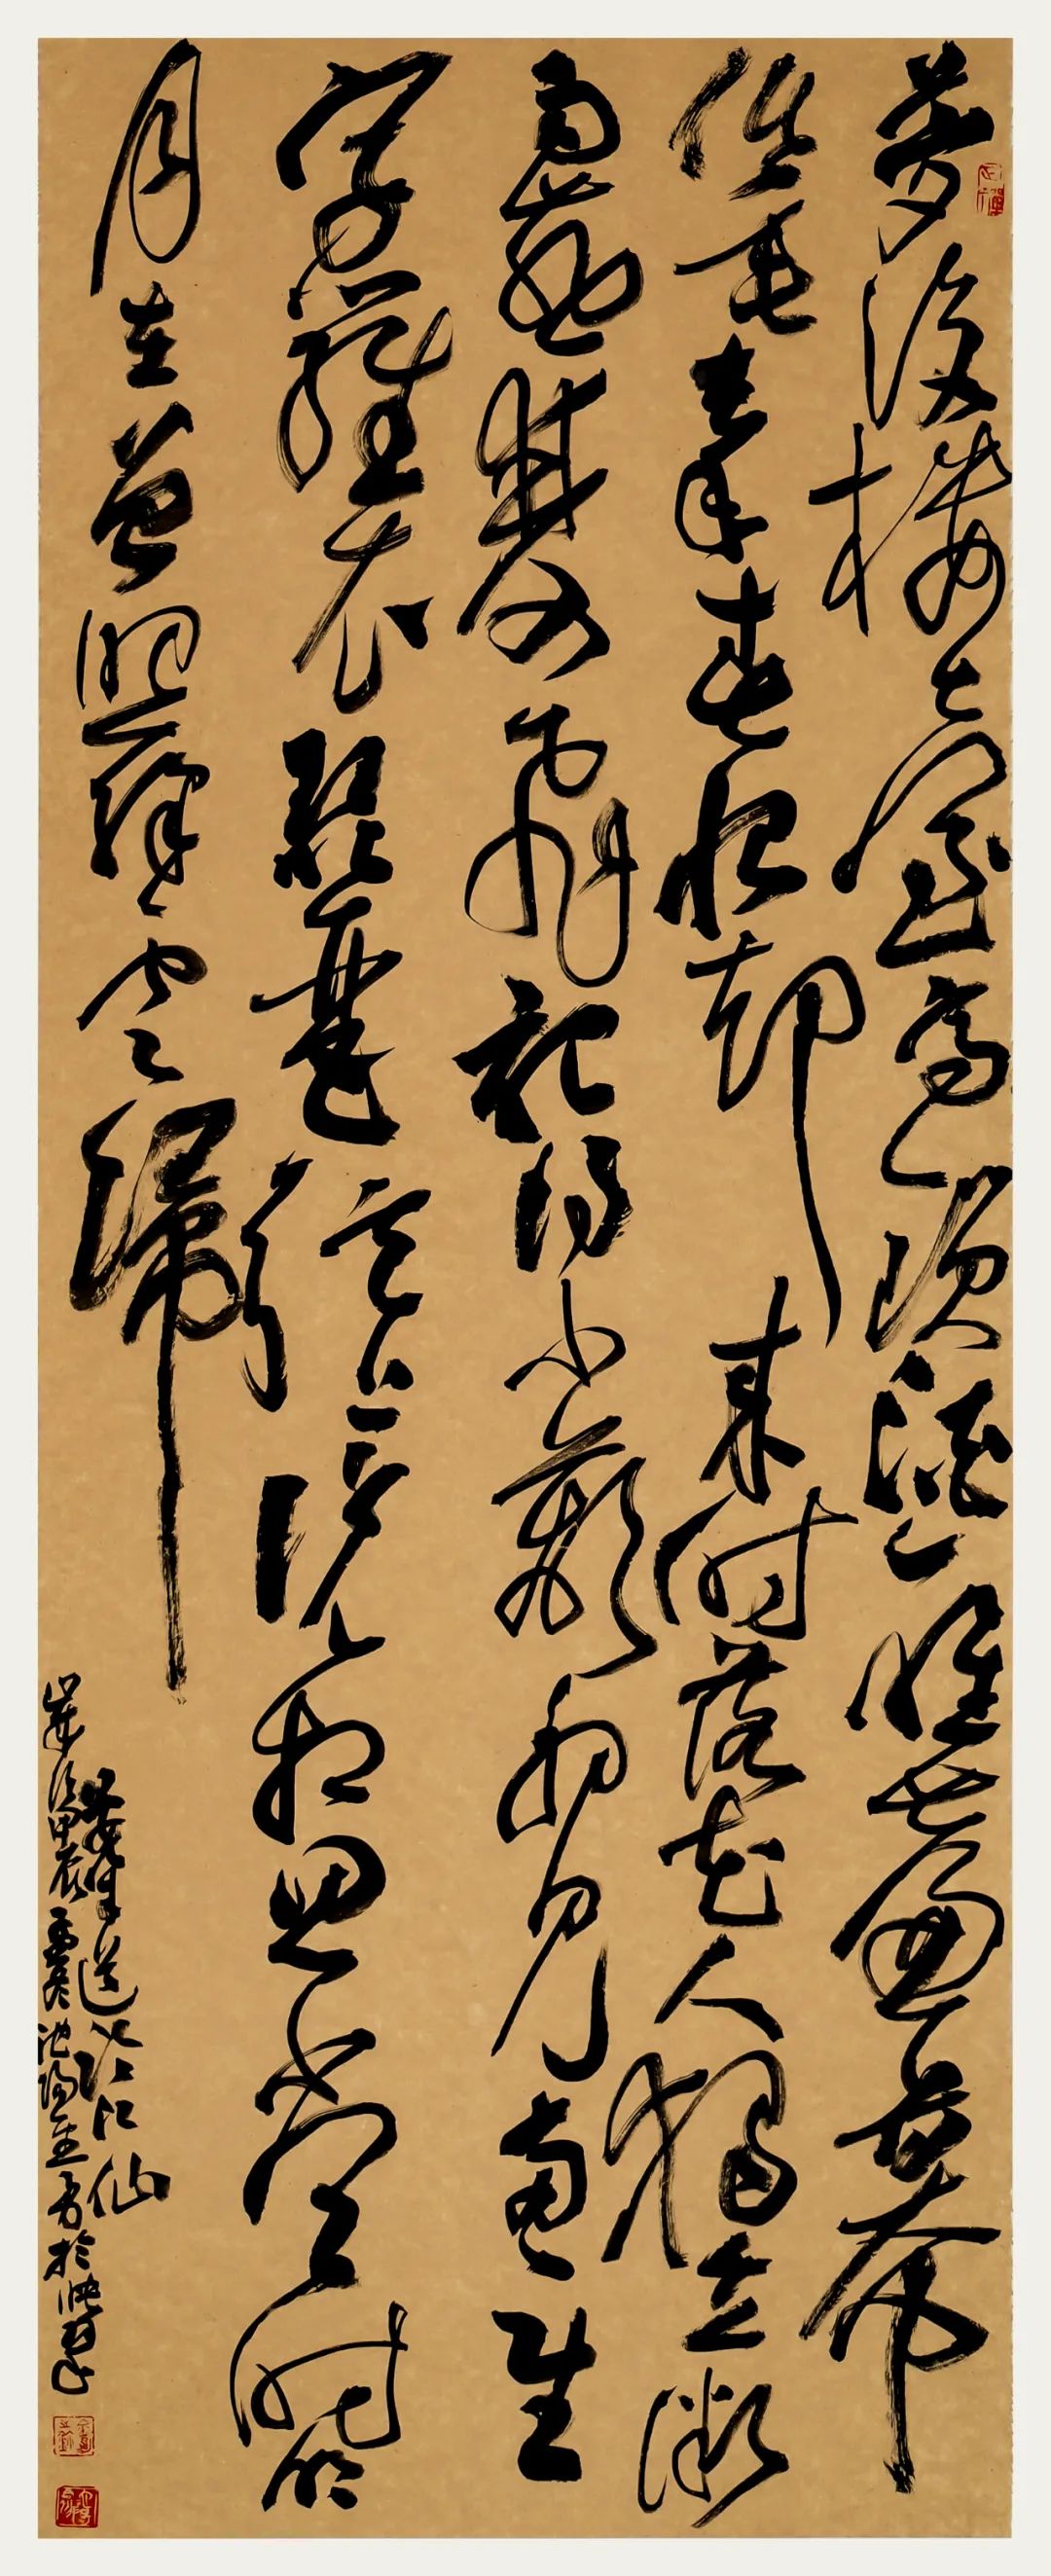 夢後樓臺高鎖酒醒簾幕
低垂去年春恨却來時落花人獨立微
雨燕雙飛記得小蘋初見兩重
字羅衣琵琶弦上說相思當時明
月在曾照彩雲歸
晏幾道臨江仙
歲次甲辰 池陽 書於